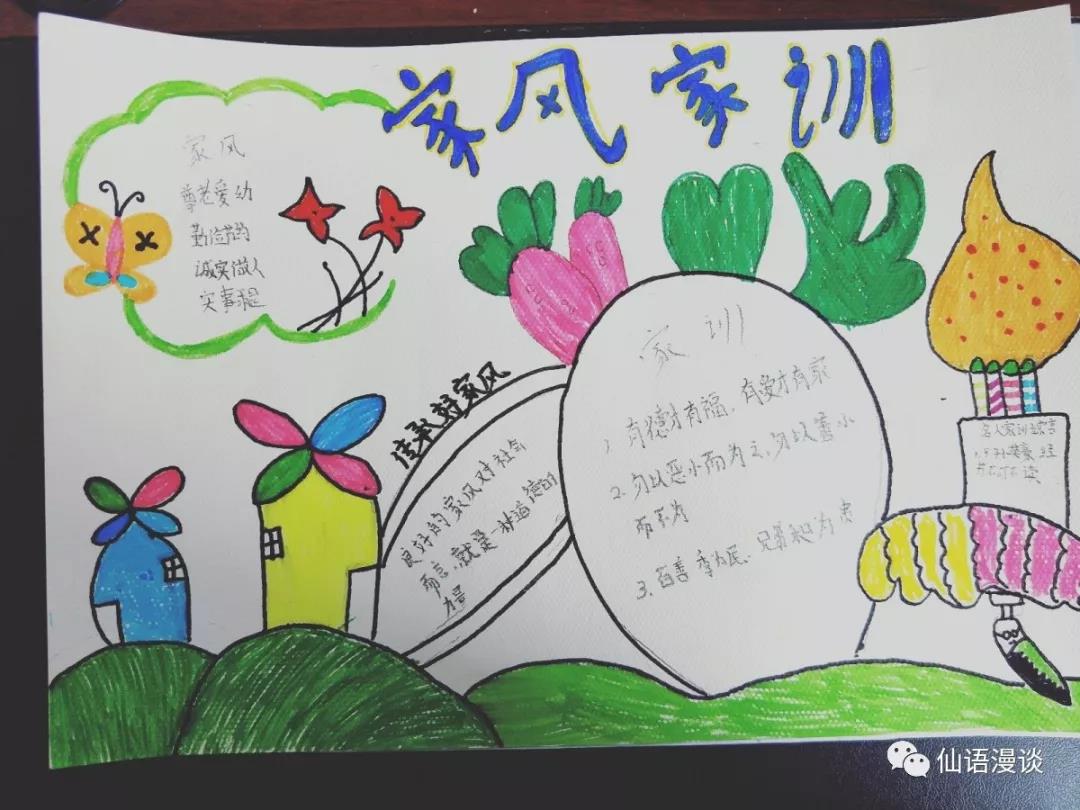 家风家训
家风
尊老爱幼
勤俭节约
诚实做人
实事求是
传承好家风
良好的家风对社会
而言，就是一种道德的
力量
家训
1、有德才有福，有爱才有家
2、勿以恶小而为之，勿以善小
而不为
3、百善孝为
名人家训
不读
仙语漫谈